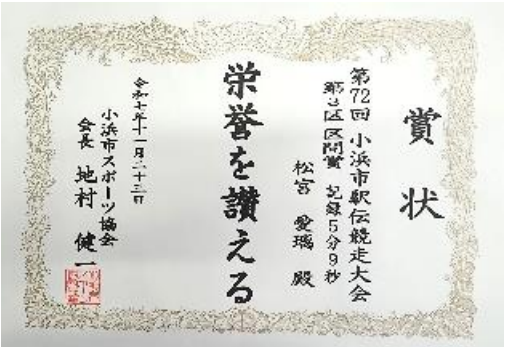 賞状
第72回 小浜市駅伝競走大会
第3区 区間賞 記録5分9秒
松宮 愛瑀 殿
栄誉を讃える
令和七年十一月二十三日
小浜市スポーツ協会
会長 地村 健一